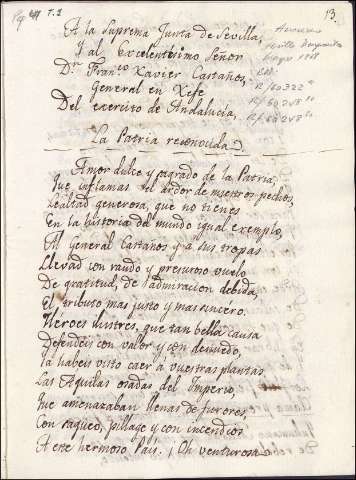 T. 2
13.
A la Suprema Junta de Sevilla,
y al Excelentísimo Señor
Dn. Franco. Xavier Castaños,
General en Xefe
Del exercito de Andalucía,
La Patria reconocida.
R/60322
R/60248
R/60248
Amor dulce y sagrado de la Patria,
Que inflamas el ardor de nuestros pechos,
Lealtad generosa, que no tienes
En la historia del mundo igual exemplo,
Al general Castaños y a sus tropas
Llevad con raudo y presuroso vuelo
De gratitud, de admiracion debida,
El tributo mas justo y mas sincéro.
Héroes ilustres, que tan bella causa
Defendeis con valor y con denuedo,
Ya habeis visto caer a vuestras plantas
Las Aquilas osadas del Imperio,
Que amenazaban llenas de furores,
Con saqueo, pillage y con incendios
A este hermoso País. ¡Oh venturosa